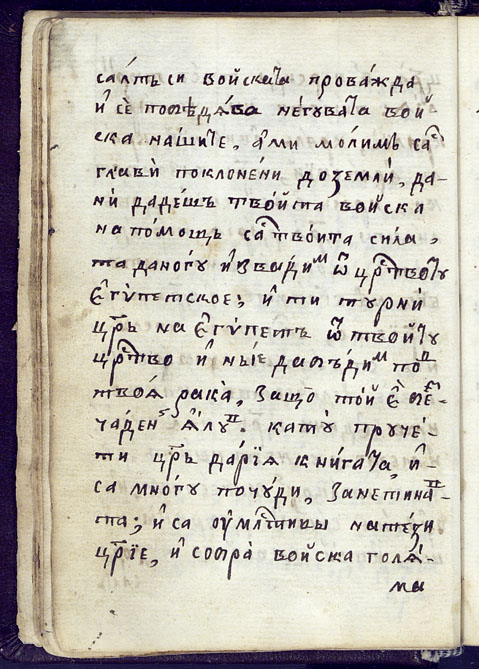 салтъ си войската проважда
и҆ сѐ повѣдѧ́ва не́гувата вой
ска на́шите, а҆́ ми мо́лимъ сѧ
главѝ поклоне́ни до землѝ, да
нѝ даде́шъ тво́йта войска
на по́мощъ са тво́ита сила,
та да ногу и҆звади́м ѿ црⷭ҇твоту
є҆гѵ́петское; и҆ ти турнѝ
цр҃ь на є҆гѵ́петъ ѿ твойту
црⷭ҇тво и҆ ны́е да сѣди́м под
твоѧ́ рака̀, защо̀ то́й є҆
ча́ден ꙗ҆́лун. кату̀ пруче́-
ти цр҃ь да́рїѧ кни́гата, и҆-
са мно́гу почу́ди, за нетина-
та; и҆ са ѹ҆ми́тины на те́зи
цр҃їе, и҆ собра̀ войска голѧ́-
ма